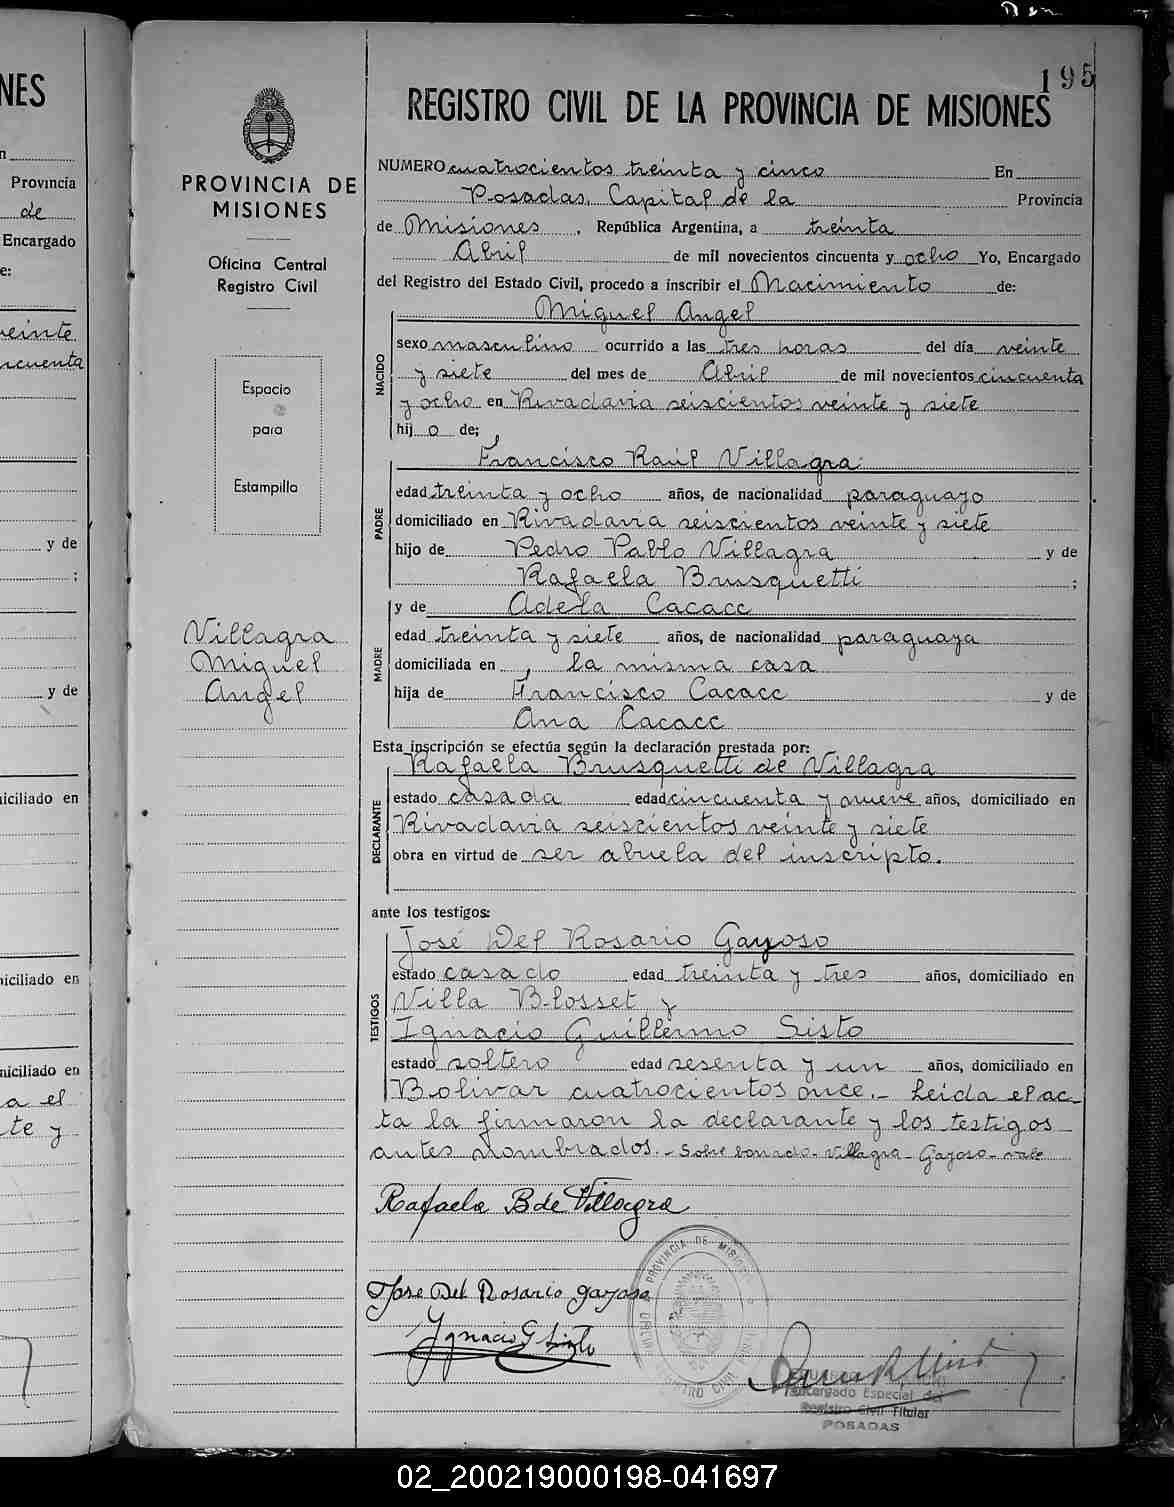 NES
n
Provincia
de
Encargado
e:
veinte
ncuenta
y de
;
y de
niciliado en
niciliado en
niciliado en
a el
te y
195
PROVINCIA DE
MISIONES
Oficina Central
Registro Civil
Espacio
para
Estampilla
Villagra
Miguel
Angel
REGISTRO CIVIL DE LA PROVINCIA DE MISIONES
NUMERO cuatrocientos treinta y cinco En
Posadas, Capital de la Provincia
de Misiones, República Argentina, a treinta
Abril de mil novecientos cincuenta y ocho Yo, Encargado
del Registro del Estado Civil, procedo a inscribir el Nacimiento de:
Miguel Angel
NACIDO
sexo masculino ocurrido a las tres horas del día veinte
y siete del mes de Abril de mil novecientos cincuenta
y ocho en Rivadavia seiscientos veinte y siete
hijo de;
Francisco Raúl Villagra
PADRE
edad treinta y ocho años, de nacionalidad paraguayo
domiciliado en Rivadavia seiscientos veinte y siete
hijo de Pedro Pablo Villagra y de
Rafaela Brusquetti ;
y de Adela Cacacc
MADRE
edad treinta y siete años, de nacionalidad paraguaya
domiciliada en la misma casa
hija de Francisco Cacacc y de
Ana Cacacc
Esta inscripción se efectúa según la declaración prestada por:
Rafaela Brusquetti de Villagra
DECLARANTE
estado casada edad cincuenta y nueve años, domiciliado en
Rivadavia seiscientos veinte y siete
obra en virtud de ser abuela del inscripto.
ante los testigos:
José Del Rosario Gayoso
TESTIGOS
estado casado edad treinta y tres años, domiciliado en
Villa Blosset y
Ignacio Guillermo Sisto
estado soltero edad sesenta y un años, domiciliado en
Bolivar cuatrocientos once.- Leída el ac-
ta la firmaron la declarante y los testigos
antes nombrados.- Sobre borrado- Villagra- Gayoso- vale
Rafaela B de Villagra
Jose Del Rosario gayoso
Ignacio G Sisto
PROVINCIA DE MISIONES
REGISTRO CIVIL
Encargado Especial del
Registro Civil Titular
POSADAS
02_200219000198-041697